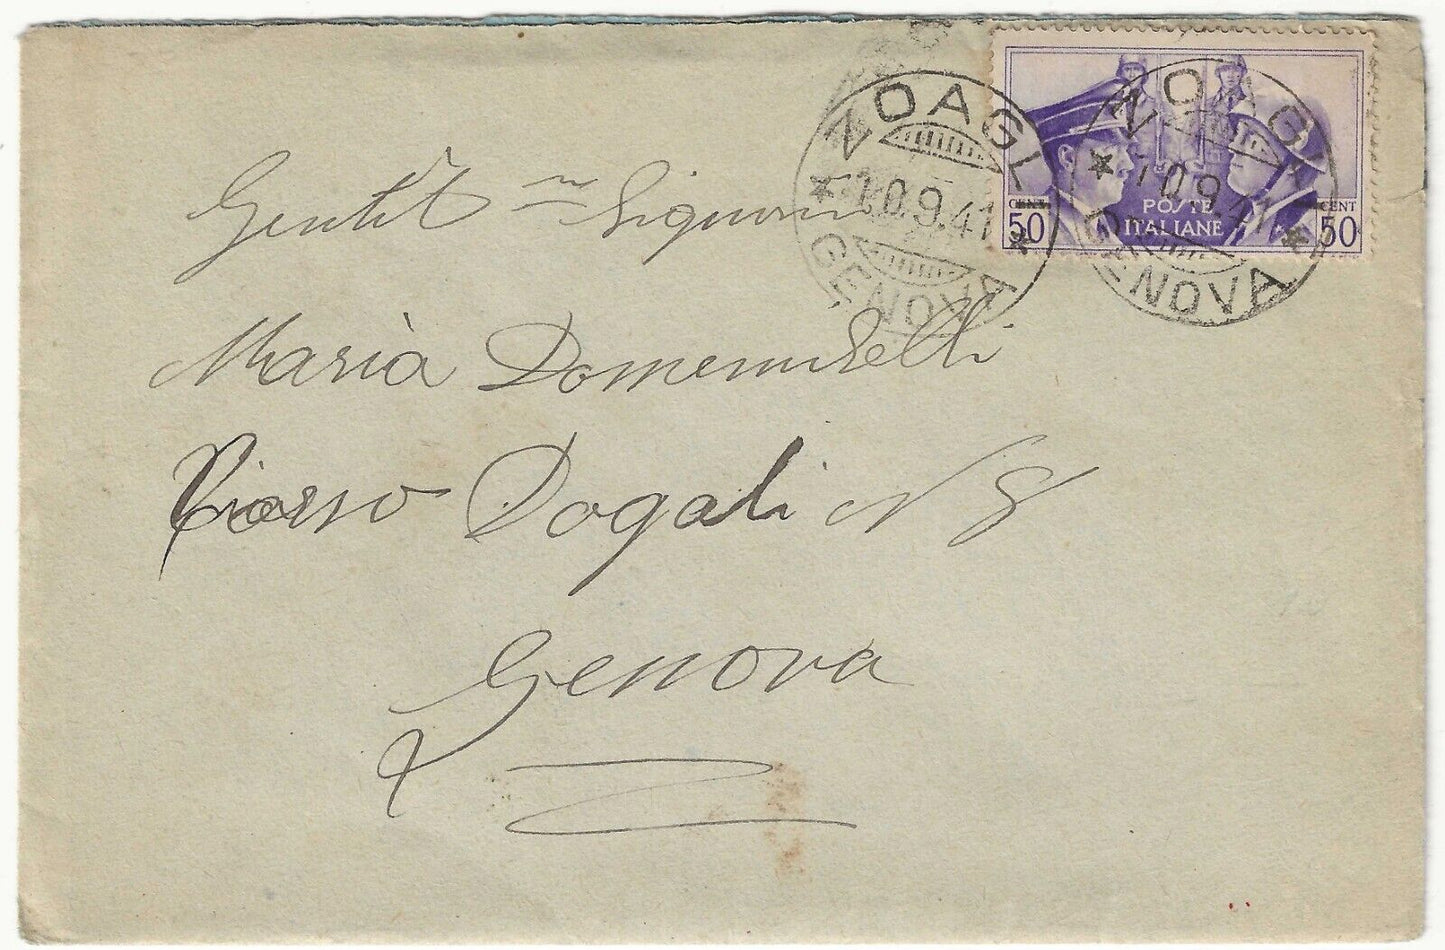 ZOAGLI
10.9.41
GENOVA
ZOAGLI
10.9.41
GENOVA
CENT 50
POSTE
ITALIANE
CENT 50
Gentil
Maria
Corso Dogali N 8
Genova